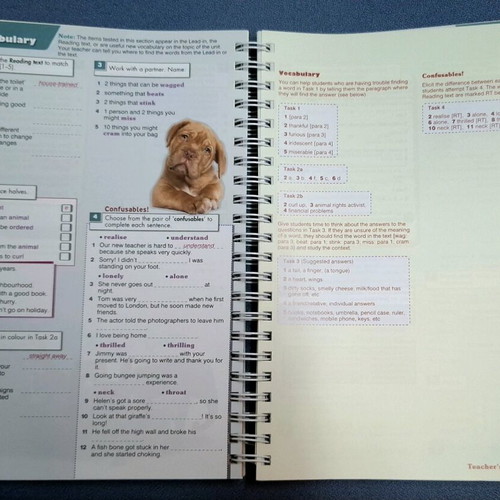 bulary
Note: The items tested in this section appear in the Lead in, the
Reading text, or are useful new vocabulary on the topic of the unit.
Your teacher can tell you where to find the words from the Lead in or
the text.
the Reading text to match
(1–5).
the toilet
house-trained
e or in a
se
ing good
different
n to change
changes
ce halves.
an animal
be ordered
n the animal
s to curl
years.
hbourhood.
with a good book.
hurry.
n't go on holiday
in colour in Task 2a
straight away
your
to
signs
ted
3 Work with a partner. Name:
1 2 things that can be wagged
2 something that beats
3 2 things that stink
4 1 person and 2 things you
might miss
5 10 things you might
cram into your bag
Confusables!
4 Choose from the pair of 'confusables' to
complete each sentence.
• realise • understand
1 Our new teacher is hard to understand
because she speaks very quickly.
2 Sorry! I didn't I was
standing on your foot.
• lonely • alone
3 She never goes out at
night.
4 Tom was very when he first
moved to London, but he soon made new
friends.
5 The actor told the photographers to leave him
6 I love being home
• thrilled • thrilling
7 Jimmy was with your
present. He's going to write and thank you for
it.
8 Going bungee jumping was a
experience.
• neck • throat
9 Helen's got a sore so she
can't speak properly.
10 Look at that giraffe's ! It's so
long!
11 He fell off the high wall and broke his
12 A fish bone got stuck in her
and she started choking.
Vocabulary
You can help students who are having trouble finding
a word in Task 1 by telling them the paragraph where
they will find the answer (see below)
Task 1
1 [para 2]
2 [para 2]
3 furious [para 3]
4 [para 4]
5 miserable [para 4]
Task 2a
2 c, 3 e, 4 f, 5 c, 6 d
Task 2b
2 curl up, 3 animal rights activist,
4 financial problems
Give students time to think about the answers to the
questions in Task 3. If they are unsure of the meaning
of a word, they should find the word in the text [wag:
para 5; beat: para 1; stink: para 3; miss: para 1; cram:
para 3] and study the context.
Task 3 (Suggested answers)
1 a tail, a finger, (a tongue)
2 a heart, wings
3 dirty socks, smelly cheese, milk/food that has
gone off, etc
4 a friend/relative, individual answers
5 books, notebooks, umbrella, pencil case, ruler,
sandwiches, mobile phone, keys, etc
Confusables!
Elicit the difference between
students attempt Task 4. The w
Reading text are marked RT be
Task 4
2 realise (RT), 3 alone, 4 lo
6 alone, 7 thrilled (RT), 8 th
10 neck (RT), 11 neck (RT)
Teacher's